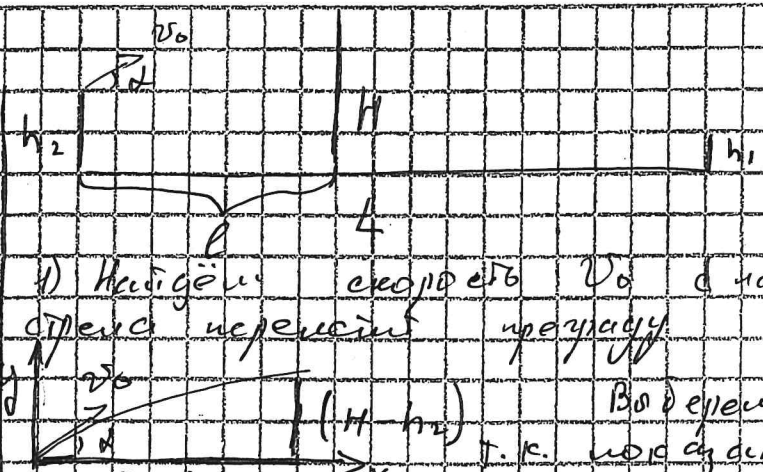 v₀
α
h₂
H
h₁
l
L
1) Найдём скорость v₀ с
стрела перелетит преграду
y
v₀
α
(H - h₂)
Выберем
т.к.
x